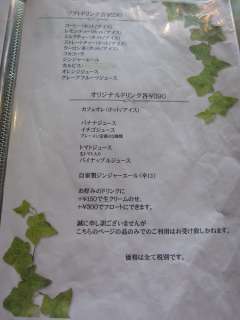 ソフトドリンク各¥290
コーヒー(ホット/アイス)
レモンティー(ホット/アイス)
ミルクティー(ホット/アイス)
ストレートティー(ホット/アイス)
ウーロン茶(ホット/アイス)
コカコーラ
ジンジャーエール
カルピス
オレンジジュース
グレープフルーツジュース
オリジナルドリンク各¥390
カフェオレ(ホット/アイス)
バナナジュース
イチゴジュース
トマトジュース
生トマト入り
パイナップルジュース
自家製ジンジャーエール(辛口)
お好みのドリンクに
+¥150で生クリームのせ、
+¥350でフロートにできます。
誠に申し訳ございませんが
こちらのページの品のみでのご利用はお受け致しかねます。
価格は全て税別です。